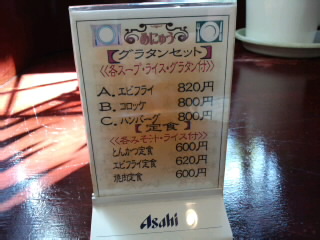 めにゅう
【グラタンセット】
《各スープ・ライス・グラタン付》
A. エビフライ 820円
B. コロッケ 800円
C. ハンバーグ 800円
【定食】
《各みそ汁・ライス付》
とんかつ定食 600円
エビフライ定食 620円
焼肉定食 600円
Asahi